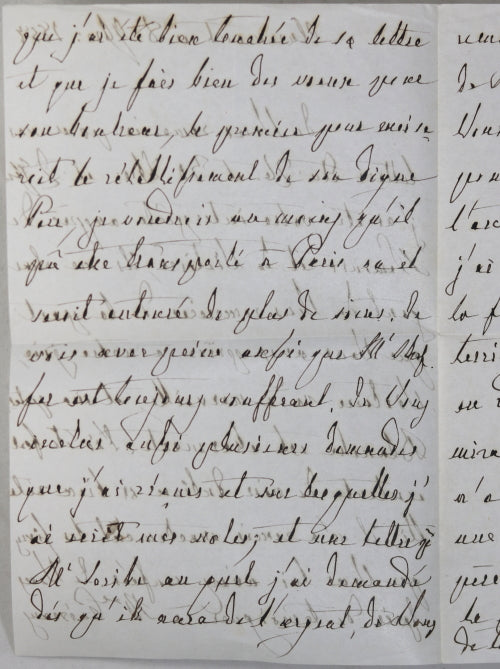 que j'ai été bien touchée de sa lettre
et que je fais bien des vœux pour
son bonheur, le premier pour moi se
rait le rétablissement de son digne
Père, je voudrais au moins qu'il
pût etre transporté à Paris où il
serait entouré de plus de soins, Je
vois avec peine aussi que Mr
est toujours souffrant, Je Vous
envoie aussi plusieurs demandes
que j'ai reçues et sur lesquelles j'
ai écrit mes notes, et une lettre de
Mr Scribe au quel j'ai demandé
dès qu'il aura de l'argent, de Vous
reu
de
Vous
pou
l'

j'ai
la f
terri
ou
mira
n'a
une
père
Le
de